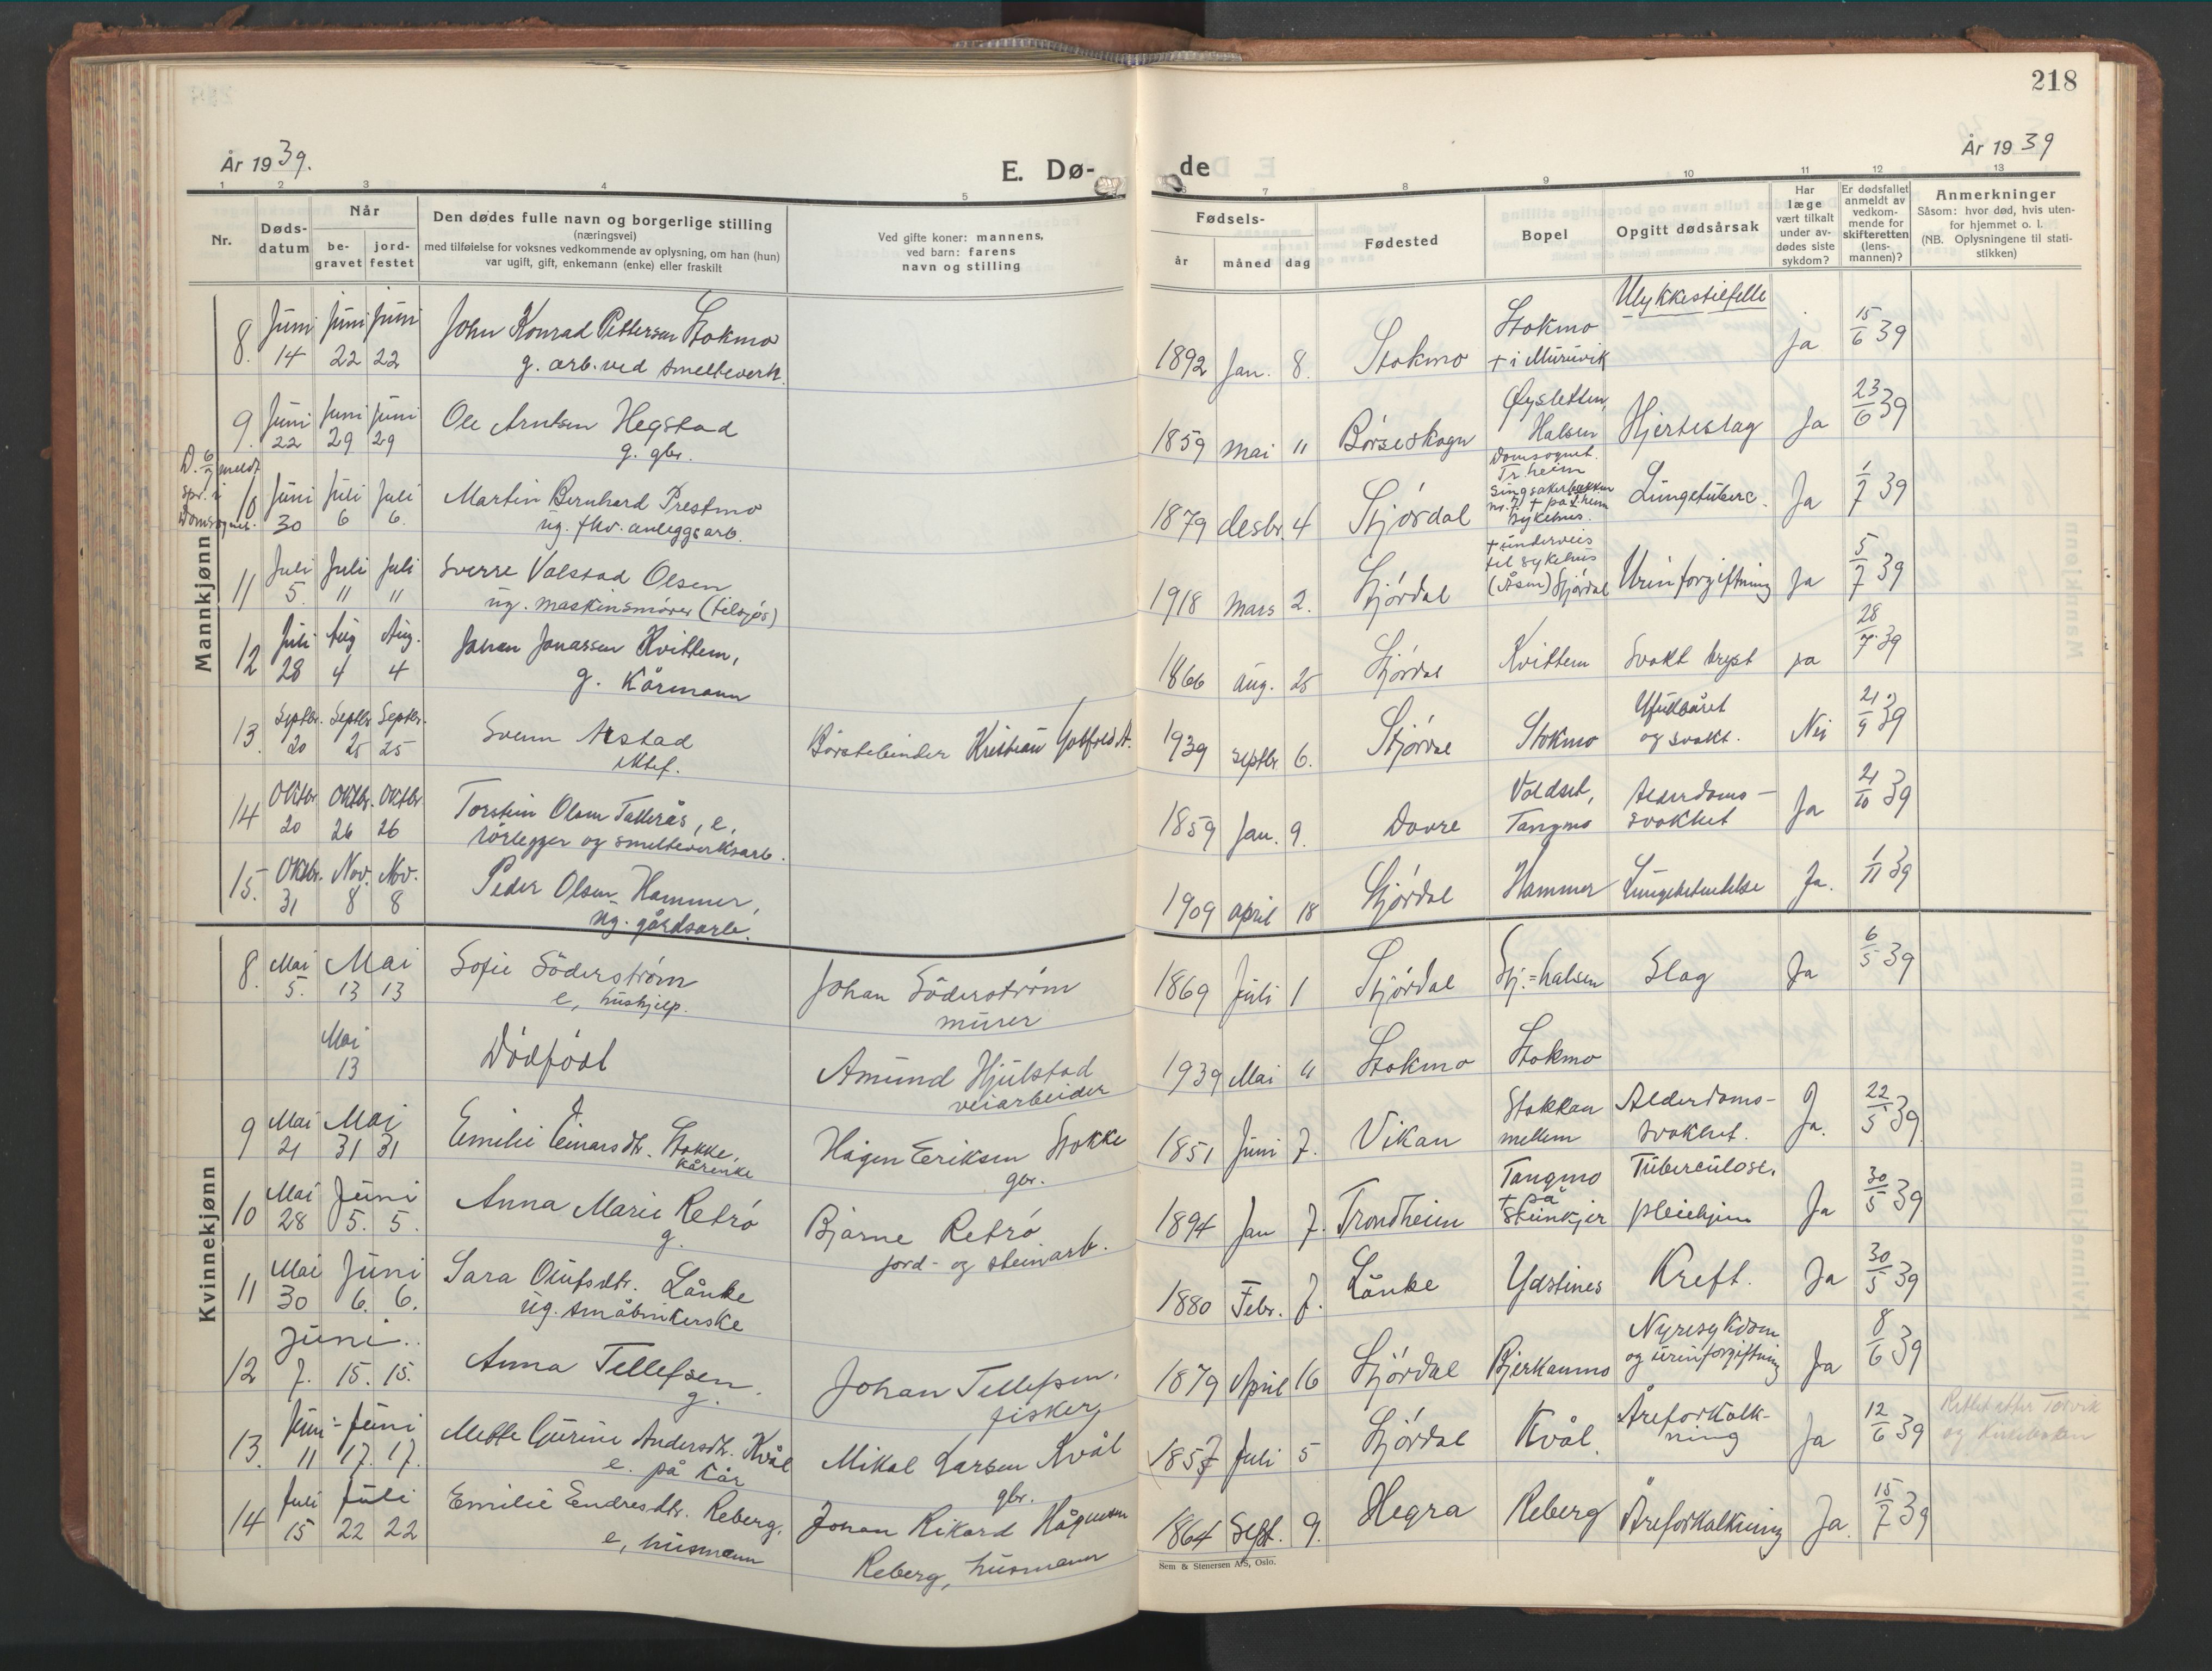 218
År 1939.
E. Dø-
de
År 1939
1 2 3 4 5 6 7 8 9 10 11 12 13
Nr.
Døds-
datum
Når
be-
gravet
jord-
festet
Den dødes fulle navn og borgerlige stilling
(næringsvei)
med tilføielse for voksnes vedkommende av oplysning, om han (hun)
var ugift, gift, enkemann (enke) eller fraskilt
Ved gifte koner: mannens,
ved barn: farens
navn og stilling
Fødsels-
år måned dag
Fødested
Bopel
Opgitt dødsårsak
Har
læge
vært tilkalt
under av-
dødes siste
sykdom?
Er dødsfallet
anmeldt av
vedkom-
mende for
skifteretten
(lens-
mannen)?
Anmerkninger
Såsom: hvor død, hvis uten-
for hjemmet o. l.
(NB. Oplysningene til stati-
stikken)
Mannkjønn
8. Juni 14 Juni 22 Juni 22 John Konrad Pettersen Stokmo
g. arb. ved smelteverk.
1892 Jan. 8. Stokmo Stokmo
+ i Muruvik
Ulykkestilfelle
ja 15/6 39
9. Juni 22 Juni 29 Juni 29 Ole Arntsen Hegstad
g. gbr.
1859 Mai 11 Børseskogn Øysletten,
Halsen
Hjerteslag Ja 23/6 39
D. 6/7 meldt
spr. i
Domsognet.
10 Juni 30 Juli 6 Juli 6. Martin Bernhard Prestmo
ug. fhv. anleggsarb.
1879 desbr. 4 Stjórdal Domsognet.
Tr.heim
Singsakerbakken
nr. 7, + på T.heim
sykehus.
Lungetuberc. Ja 1/7 39
11 Juli 5. Juli 11 Juli 11 Sverre Valstad Olsen
ug. maskinsmører (tilsjøs)
1918 Mars 2. Stjórdal + underveis
til sykehus
(Åsen) Stjórdal
Urinforgiftning Ja 5/7 39
12 Juli 28 Aug 4 Aug. 4 Johan Jonassen Kvittem,
g. Kårmann
1866 Aug. 25 Stjórdal Kvittem Svakt bryst ja 28/7 39
13. Septbr. 20 Septbr. 25 Septbr. 25 Svenn Arstad
Ektef.
Børstebinder Kristian Gotfred A.
1939 Septbr. 6. Stjórdal Stokmo Ufullbåret
og svakt. Nei 21/9 39
14 Oktbr. 20 Oktbr. 26 Oktbr. 26 Torstein Olsen Tallerås, e,
rørlegger og smelteverksarb.
1859 Jan. 9. Dovre Valdset,
Tangmo
Alderdoms-
svakhet Ja 21/10 39
15. Oktbr. 31 Nov. 8 Nov. 8 Peder Olsen Hammer,
ug. gårdsarb.
1909 April 18 Stjórdal Hammer Lungebetendelse Ja. 1/11 39
Kvinnekjønn
8. Mai 5. Mai 13 13 Sofie Söderström
e, hushjelp.
Johan Söderström
murer
1869 Juli 1 Stjórdal Stj.=halsen Slag Ja 6/5 39
Mai 13 Dödfödt
Amund Hjulstad
veiarbeider
1939 Mai 11 Stokmo Stokmo
9 Mai 21 Mai 31 31 Emilie Einarsdtr. Stokke,
Kårenke
Hågen Eriksen Stokke
gbr.
1851 Juni 7. Vikan Stokkan
mellem
Alderdoms-
svakhet. Ja. 22/5 39
10 Mai 28 Juni 5. 5. Anna Marie Retrö
g.
Bjarne Retrö
jord- og steinarb.
1894 Jan 7. Trondheim Tangmo
+ på
Steinkjer
Tuberculose.
pleiehjem Ja 30/5 39
11 Mai 30 Juni 6. 6. Sara Olufsdtr. Lånke
ug. småbrukerske
1880 Febr. 7. Lånke Ydstines Kreft. Ja 30/5 39
12 Juni 7. 15. 15. Anna Tellefsen.
g.
Johan Tellefsen,
fisker
1879 April 16 Stjórdal Bjerkanmo Nyresykdom
og urinforgiftning Ja 8/6 39
13. Juni 11 Juni 17. 17. Mette Gurine Andersdtr. Kvål
e. på kår
Mikal Larsen Kvål
gbr.
1857 Juli 5 Stjórdal Kvål. Åreforkalk-
ning Ja 12/6 39
Rettet etter
og
14 Juli 15 Juli 22 22 Emilie Endresdtr. Reberg,
e, husmann
Johan Rikard Hågensen
Reberg, husmann
1864 Sept. 9. Hegra Reberg Åreforkalkning Ja. 15/7 39
Sem & Stenersen A/S, Oslo.